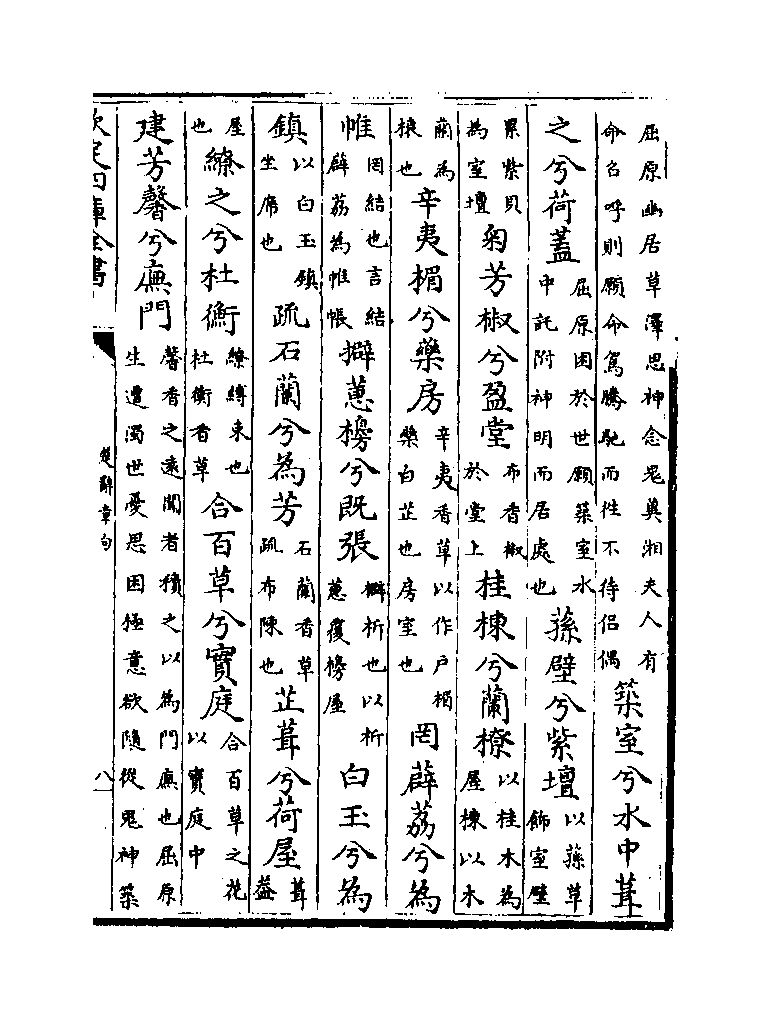 屈原幽居草澤思神念鬼兾湘夫人有命召呼則願命駕騰馳而往不待侶偶築室兮水中葺
之兮荷蓋屈原困於世願築室水中託附神明而居處也蓀壁兮紫壇以蓀草飾室壁
累紫貝為室壇匊芳椒兮盈堂布香椒於堂上桂棟兮蘭橑以桂木為屋棟以木
蘭為榱也辛夷楣兮藥房辛夷香草以作戸楣藥白芷也房室也罔薜荔兮為
帷罔結也言結薜荔為帷帳擗蕙櫋兮既張擗析也以析蕙覆櫋屋白玉兮為
鎮以白玉鎮坐席也疏石蘭兮為芳石蘭香草疏布陳也芷葺兮荷屋葺葢
屋也繚之兮杜衡繚縛束也杜衡香草合百草兮實庭合百草之花以實庭中
建芳馨兮廡門馨香之遠聞者積之以為門廡也屈原生遭濁世憂思困極意欲隨從鬼神築
欽定四庫全書
楚辭章句
八